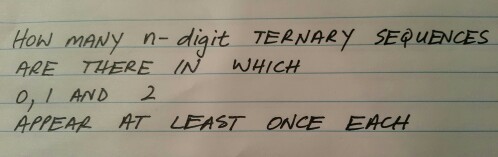 HOW MANY n-digit TERNARY SEQUENCES
ARE THERE IN WHICH
0, 1 AND 2
APPEAR AT LEAST ONCE EACH